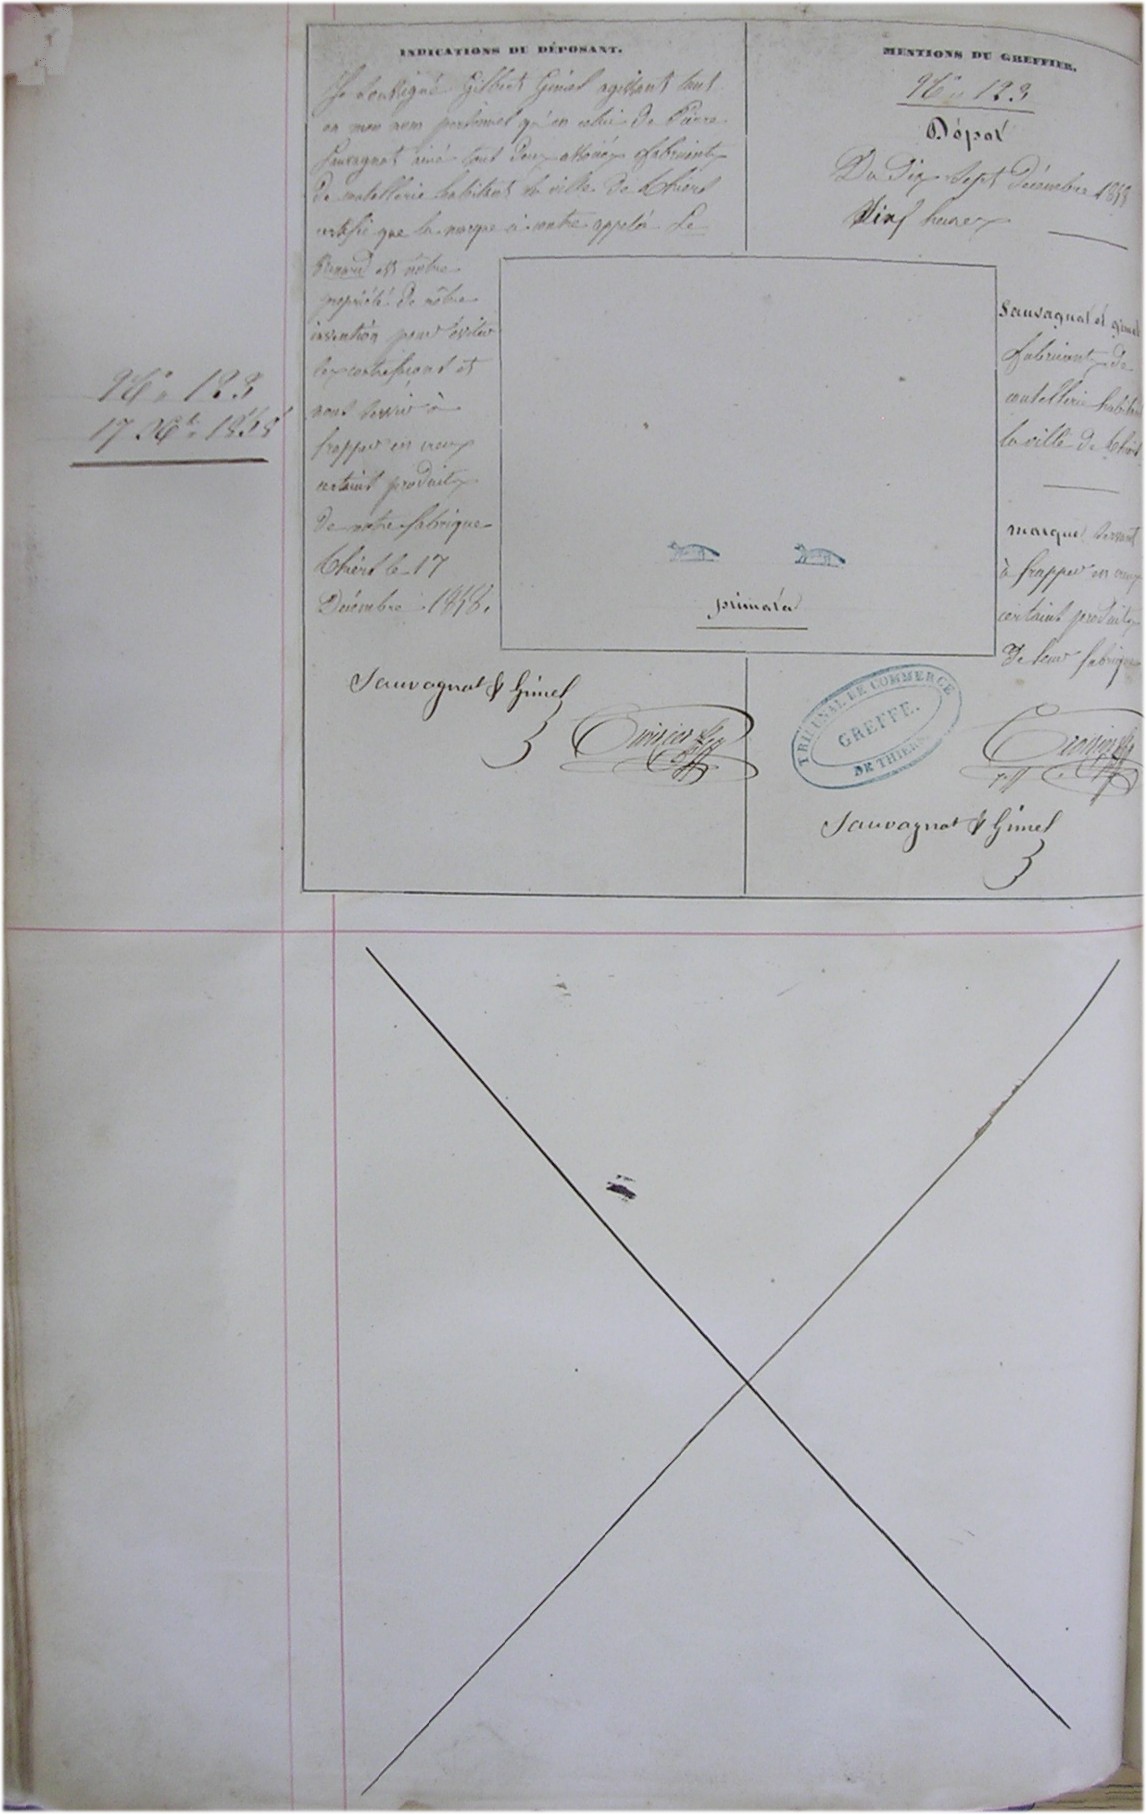 N° 123
17 Xbre 1858
INDICATIONS DU DÉPOSANT.
Je soussigné Gilbert Gimel agissant tant
en mon nom personnel qu'en celui de Pierre
Sauvagnat ainé tout deux associés fabricants
de coutellerie habitant la ville de Thiers
certifie que la marque ci contre appelée Le
Renard est nôtre
propriété de nôtre
invention pour éviter
les contrefaçons et
nous servir à
frapper en creux
certains produits
de notre fabrique
Thiers le 17
Décembre 1858.
Sauvagnat & Gimel
MENTIONS DU GREFFIER.
N° 123
Dépot
Du Dix Sept Décembre 1858
heures
primata
Sauvagnat et Gimel
fabricants de
coutellerie habitant
la ville de Thiers
marque servant
à frapper en creux
certains produits
de leur fabrique
TRIBUNAL DE COMMERCE
GREFFE.
DE THIERS
Sauvagnat & Gimel